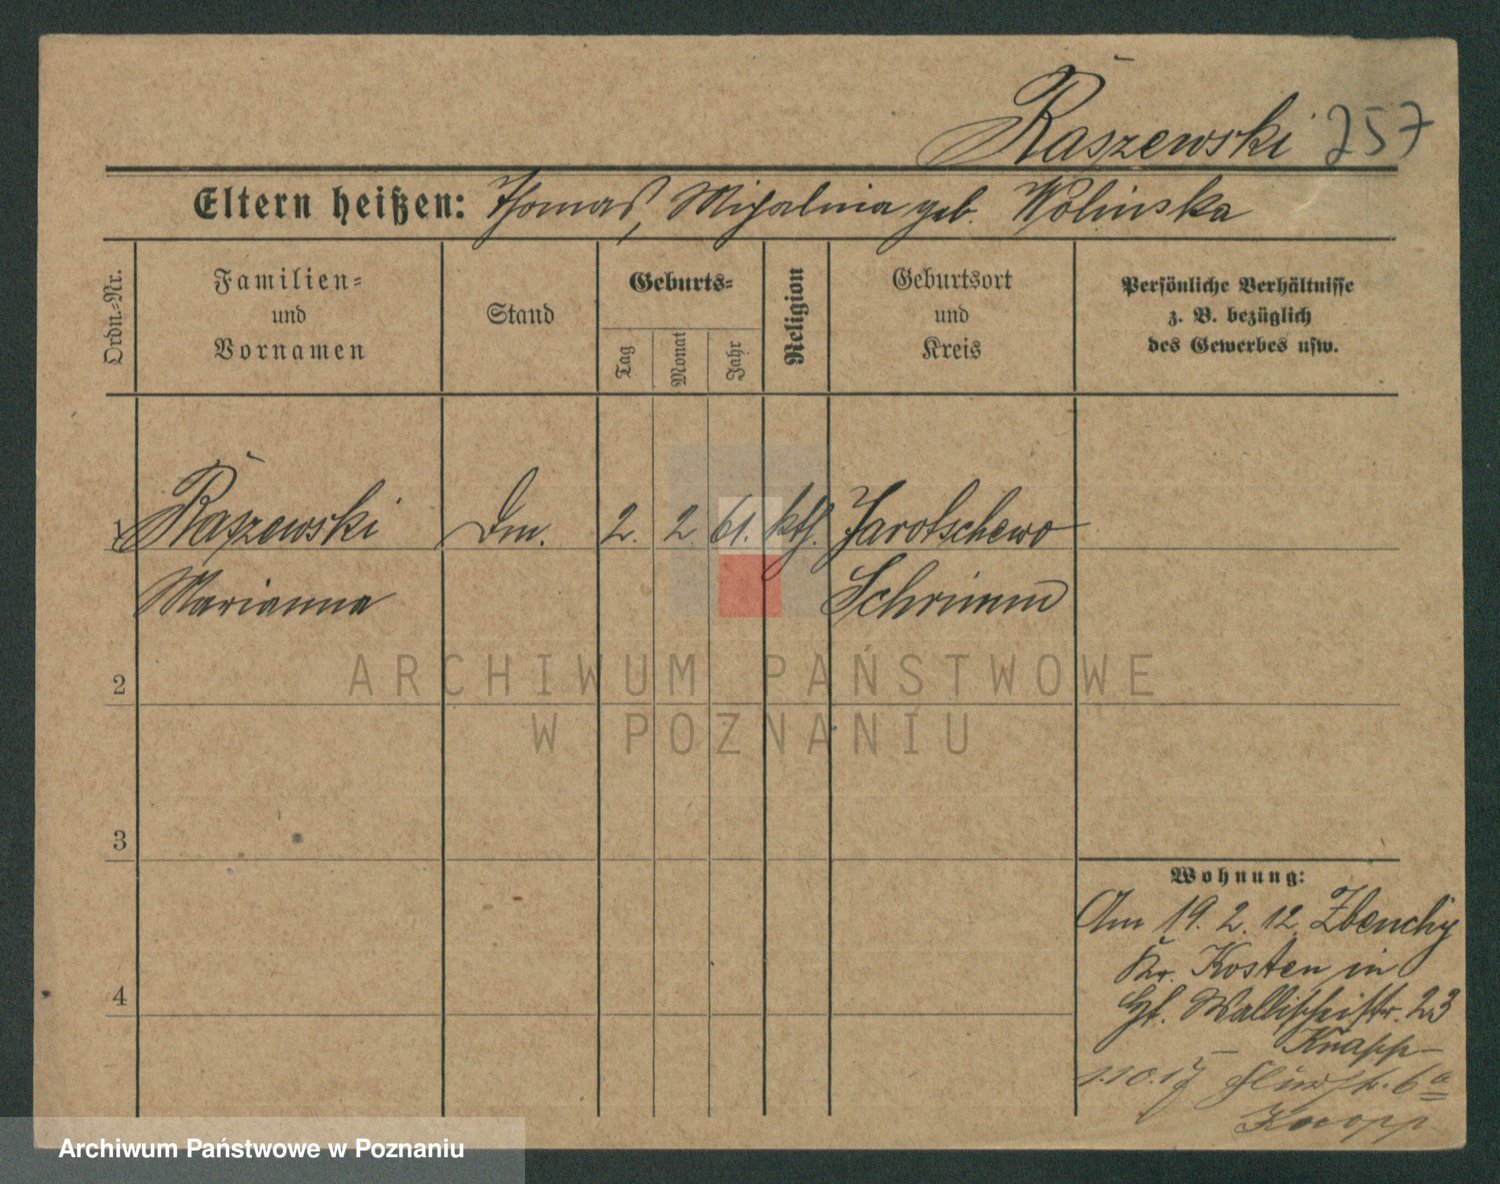 Raszewski 257
Eltern heißen: Thomas, Michalina geb. Wolinska
Ordn.-Nr.
Familien-
und
Vornamen
Stand
Geburts-
Tag
Monat
Jahr
Religion
Geburtsort
und
Kreis
Persönliche Verhältnisse
z. B. bezüglich
des Gewerbes usw.
1 Raszewski Dm. 2. 2. 61. kth. Jarotschewo
Marianna Schrimm
2
3
4
ARCHIWUM PAŃSTWOWE
W POZNANIU
Wohnung:
Am 19. 2. 12. Zbenchy
Kr. Kosten in
Wallischeistr. 23
Knapp
1.10.17 6a
Knapp
Archiwum Państwowe w Poznaniu